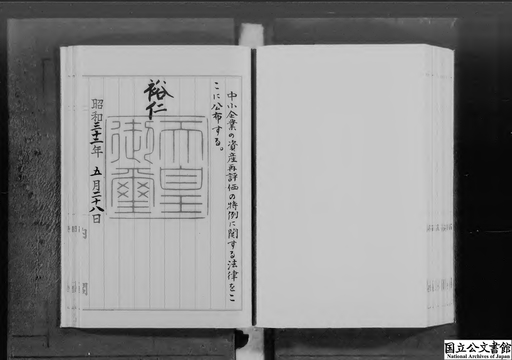 中小企業の資産再評価の特例に関する法律をこ
こに公布する。
裕仁
天皇
御璽
昭和三十二年 五月二十八日
国立公文書館
National Archives of Japan